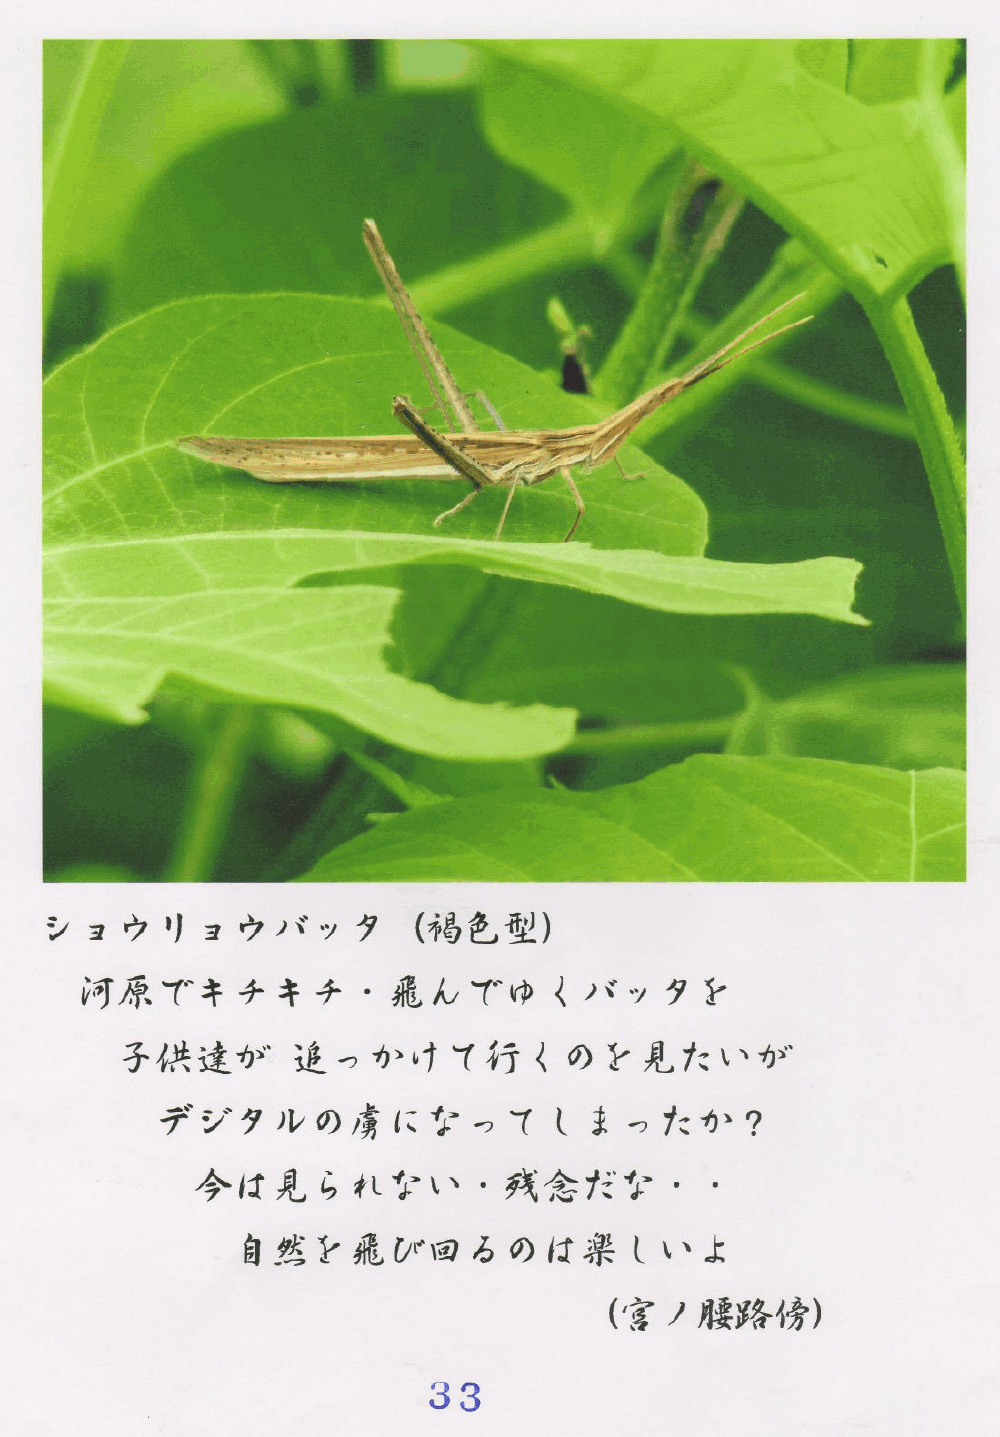 ショウリョウバッタ (褐色型)
河原でキチキチ・飛んでゆくバッタを
子供達が 追っかけて行くのを見たいが
デジタルの虜になってしまったか?
今は見られない・残念だな・・
自然を飛び回るのは楽しいよ
(宮ノ腰路傍)
33